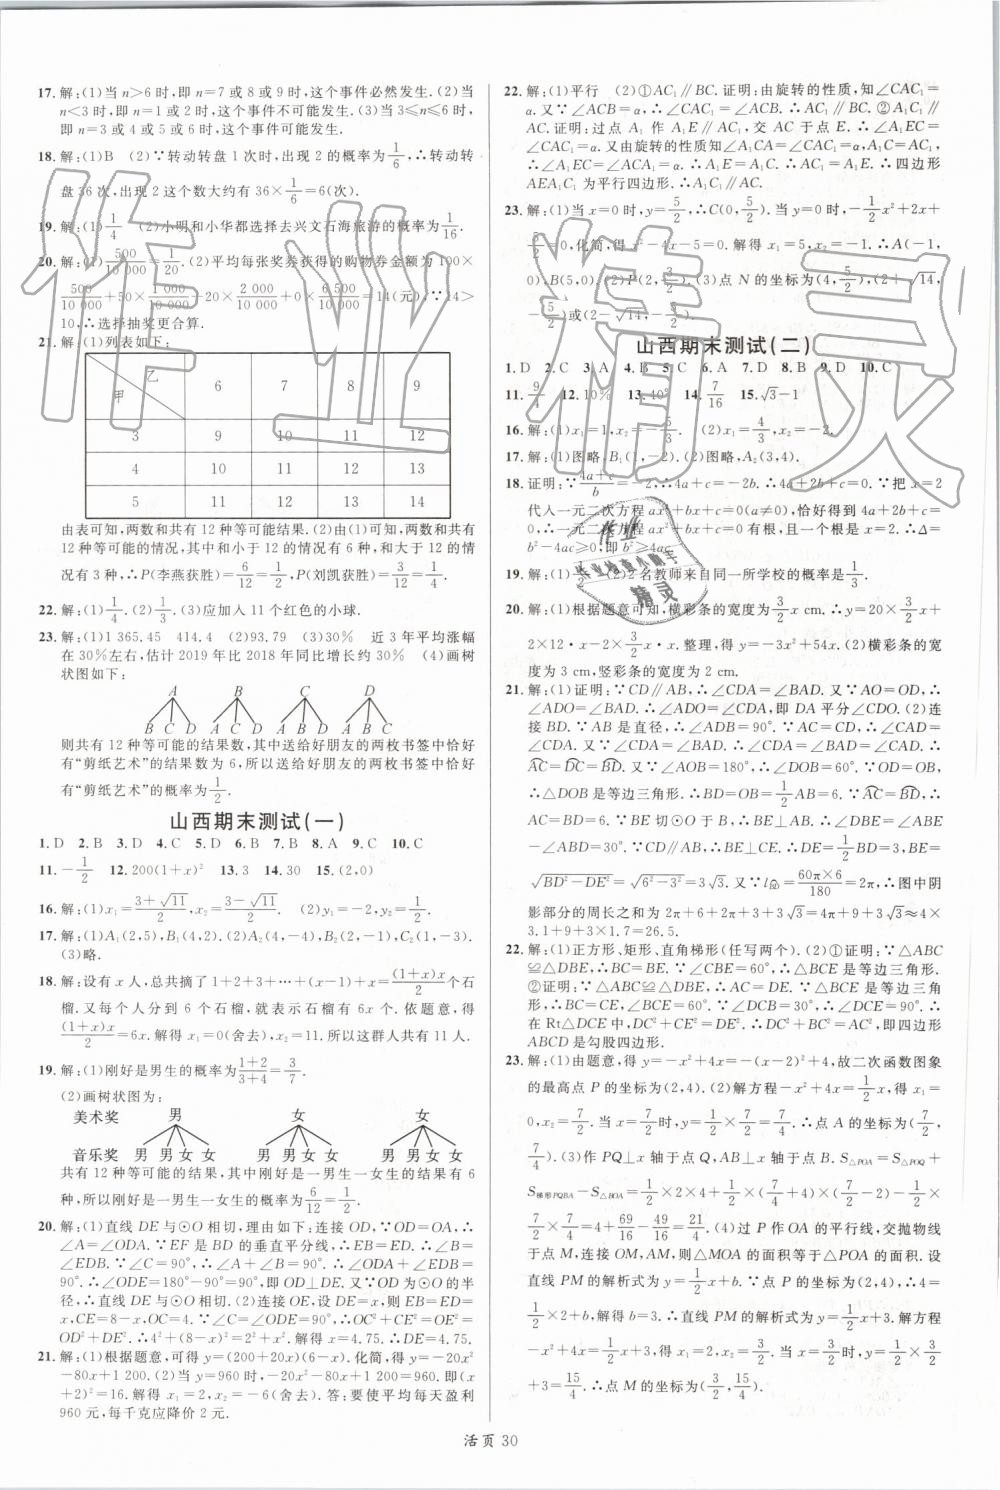 17.解:(1)当 n>6 时,即 n=7 或 8 或 9 时,这个事件必然发生.(2)当
n<3 时,即 n=1 或 2 时,这个事件不可能发生.(3)当 3≤n≤6 时,
即 n=3 或 4 或 5 或 6 时,这个事件可能发生.
18.解:(1)B (2)∵转动转盘 1 次时,出现 2 的概率为1/6,∴转动转
盘 36 次,出现 2 这个数大约有 36×1/6=6(次).
19.解:(1)1/4 (2)小明和小华都选择去兴文石海旅游的概率为1/16.
20.解:(1)500/10 000=1/20.(2)平均每张奖券获得的购物券金额为 100×
500/10 000+50×1 000/10 000+20×2 000/10 000+0×6 500/10 000=14(元),∵14>
10,∴选择抽奖更合算.
21.解:(1)列表如下:
乙 甲 6 7 8 9
3 9 10 11 12
4 10 11 12 13
5 11 12 13 14
由表可知,两数和共有 12 种等可能结果.(2)由(1)可知,两数和共有
12 种等可能的情况,其中和小于 12 的情况有 6 种,和大于 12 的情
况有 3 种,∴P(李燕获胜)=6/12=1/2,P(刘凯获胜)=3/12=1/4.
22.解:(1)1/2 (2)1/4 (3)应加入 11 个红色的小球.
23.解:(1)1 365.45 414.4 (2)93.79 (3)30% 近 3 年平均涨幅
在 30%左右,估计 2019 年比 2018 年同比增长约 30% (4)画树
状图如下:
A B C D
B C D A C D A B D A B C
则共有 12 种等可能的结果数,其中送给好朋友的两枚书签中恰好
有“剪纸艺术”的结果数为 6,所以送给好朋友的两枚书签中恰好
有“剪纸艺术”的概率为1/2.
山西期末测试(一)
1.D 2.B 3.D 4.C 5.D 6.B 7.B 8.A 9.C 10.C
11.-1/2 12.200(1+x)² 13.3 14.30 15.(2,0)
16.解:(1)x₁=(3+√11)/2,x₂=(3-√11)/2. (2)y₁=-2,y₂=1/2.
17.解:(1)A₁(2,5),B₁(4,2).(2)A₂(4,-4),B₂(1,-2),C₂(1,-3).
(3)略.
18.解:设有 x 人,总共摘了 1+2+3+…+(x-1)+x=(1+x)x/2个石
榴.又每个人分到 6 个石榴,就表示石榴有 6x 个.依题意,得
(1+x)x/2=6x.解得 x₁=0(舍去),x₂=11.所以这群人共有 11 人.
19.解:(1)刚好是男生的概率为(1+2)/(3+4)=3/7.
(2)画树状图为:
美术奖 男 女 女
音乐奖 男 男 女 女 男 男 女 女 男 男 女 女
共有 12 种等可能的结果,其中刚好是一男生一女生的结果有 6
种,所以刚好是一男生一女生的概率为6/12=1/2.
20.解:(1)直线 DE 与⊙O 相切,理由如下:连接 OD,∵OD=OA,∴
∠A=∠ODA.∵EF 是 BD 的垂直平分线,∴EB=ED.∴∠B=
∠EDB.∵∠C=90°,∴∠A+∠B=90°.∴∠ODA+∠EDB=
90°.∴∠ODE=180°-90°=90°,即 OD⊥DE.又∵OD 为⊙O 的半
径,∴直线 DE 与⊙O 相切.(2)连接 OE,设 DE=x,则 EB=ED=
x,CE=8-x.∵OC=4.∵∠C=∠ODE=90°,∴OC²+CE²=OE²=
OD²+DE².∴4²+(8-x)²=2²+x².解得 x=4.75.∴DE=4.75.
21.解:(1)根据题意,可得 y=(200+20x)(6-x).化简,得 y=-20x²
-80x+1 200.(2)当 y=960 时,-20x²-80x+1 200=960.即(x
+2)²=16.解得 x₁=2,x₂=-6(舍去).答:要使平均每天盈利
960 元,每千克应降价 2 元.
22.解:(1)平行 (2)①AC₁∥BC.证明:由旋转的性质,知∠CAC₁=
α.又∵∠ACB=α,∴∠CAC₁=∠ACB.∴AC₁∥BC.②A₁C₁∥
AC.证明:过点 A₁ 作 A₁E∥AC₁,交 AC 于点 E.∴∠A₁EC=
∠CAC₁=α.又由旋转的性质知∠A₁CA=∠CAC₁=α,A₁C=AC₁,
∴∠A₁EC=∠ACA₁=α.∴A₁E=A₁C=AC₁.∴A₁E=AC₁.∴四边形
AEA₁C₁ 为平行四边形.∴A₁C₁∥AC.
23.解:(1)当 x=0 时,y=5/2,∴C(0,5/2).当 y=0 时,-1/2x²+2x+
5/2=0,化简,得 x²-4x-5=0.解得 x₁=5,x₂=-1.∴A(-1,0),
B(5,0).(2)P(2,3/2).(3)点 N 的坐标为(4,5/2)或(2+√14,
-5/2)或(2-√14,-5/2).
山西期末测试(二)
1.D 2.C 3.A 4.B 5.C 6.A 7.D 8.B 9.D 10.C
11.9/4 12.10% 13.40° 14.7/16 15.√3-1
16.解:(1)x₁=1,x₂=1/5. (2)x₁=4/3,x₂=-2.
17.解:(1)图略,B₁(5,4).(2)图略,A₂(3,4).
18.证明:∵(4a+c)/b=-2,∴4a+c=-2b.∴4a+2b+c=0.∵把 x=2
代入一元二次方程 ax²+bx+c=0(a≠0),恰好得到 4a+2b+c=
0.∴一元二次方程 ax²+bx+c=0 有根,且一个根是 x=2.∴Δ=
b²-4ac≥0,即 b²≥4ac.
19.解:(1)1/2 (2)2 名教师来自同一所学校的概率是1/3.
20.解:(1)根据题意可知,横彩条的宽度为3/2x cm.∴y=20×3/2x+
2×12·x-2×3/2x·x.整理,得 y=-3x²+54x.(2)横彩条的宽
度为 3 cm,竖彩条的宽度为 2 cm.
21.解:(1)证明:∵CD∥AB,∴∠CDA=∠BAD.又∵AO=OD,∴
∠ADO=∠BAD.∴∠ADO=∠CDA,即 DA 平分∠CDO.(2)连
接 BD.∵AB 是直径,∴∠ADB=90°.∵AC=CD,∴∠CAD=
∠CDA.又∵∠CDA=∠BAD,∴∠CDA=∠BAD=∠CAD.∴
AC=DC=BD.又∵∠AOB=180°,∴∠DOB=60°.又∵OD=OB,
∴△DOB 是等边三角形.∴BD=OB=1/2AB=6.∵AC=BD,∴
AC=BD=6.∵BE 切⊙O 于 B,∴BE⊥AB.∴∠DBE=∠ABE
-∠ABD=30°.∵CD∥AB,∴BE⊥CE.∴DE=1/2BD=3,BE=
√(BD²-DE²)=√(6²-3²)=3√3.又∵l=(60π×6)/180=2π,∴图中阴
影部分的周长之和为 2π+6+2π+3+3√3=4π+9+3√3≈4×
3.1+9+3×1.7=26.5.
22.解:(1)正方形、矩形、直角梯形(任写两个).(2)①证明:∵△ABC
≌△DBE,∴BC=BE.∵∠CBE=60°,∴△BCE 是等边三角形.
②证明:∵△ABC≌△DBE,∴AC=DE.∵△BCE 是等边三角
形,∴BC=CE,∠BCE=60°.∵∠DCB=30°,∴∠DCE=90°.∴
在 Rt△DCE 中,DC²+CE²=DE².∴DC²+BC²=AC²,即四边形
ABCD 是勾股四边形.
23.解:(1)由题意,得 y=-x²+4x=-(x-2)²+4,故二次函数图象
的最高点 P 的坐标为(2,4).(2)解方程-x²+4x=1/2x,得 x₁
=0,x₂=7/2.当 x=7/2时,y=1/2×7/2=7/4.∴点 A 的坐标为(7/2,
7/4).(3)作 PQ⊥x 轴于点 Q,AB⊥x 轴于点 B.S△POA=S△POQ+
S梯形PQBA-S△BOA=1/2×2×4+1/2×(7/4+4)×(7/2-2)-1/2×
7/2×7/4=4+69/16-49/16=21/4.(4)过 P 作 OA 的平行线,交抛物线
于点 M,连接 OM,AM,则△MOA 的面积等于△POA 的面积.设
直线 PM 的解析式为 y=1/2x+b.∵点 P 的坐标为(2,4),∴4=
1/2×2+b,解得 b=3.∴直线 PM 的解析式为 y=1/2x+3.解方程
-x²+4x=1/2x+3,得 x₁=2,x₂=3/2.当 x=3/2时,y=1/2×3/2
+3=15/4.∴点 M 的坐标为(3/2,15/4).
作业精灵
活页 30